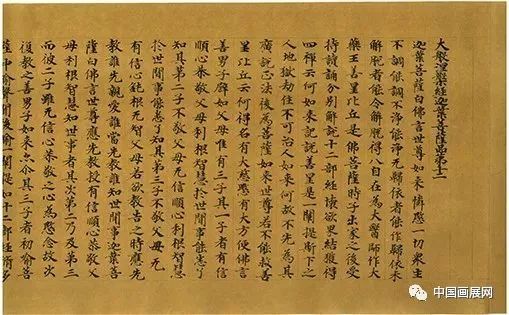 大般涅槃經迦葉菩薩品第十二
迦葉菩薩白佛言世尊如來憐愍一切眾生
不調能調不淨能淨无歸依者能作歸依未
解脫者能令解脫得八自在為大醫師作大
藥王善星比丘是佛菩薩時子出家之後受
持讀誦分別解說十二部經壞欲界結獲得
四禪云何如來記說善星是一闡提廝下之
人地獄劫住不可治人如來何故不先為其
廣說正法後為菩薩如來世尊若不能救善
星比丘云何得名有大慈愍有大方便佛言
善男子譬如父母唯有三子其一子者有信
順心恭敬父母利根智慧於世間事能速了
知其第二子不敬父母无信順心利根智慧
於世間事能速了知其第三子不敬父母无
有信心鈍根无智父母若欲教告之時應先
教誰先親愛誰當先教誰知世間事迦葉菩
薩白佛言世尊應先教授有信順心恭敬父
母利根智慧知世事者其次第二乃及第三
而彼二子雖无信心恭敬之心為愍念故次
復教之善男子如來亦尒其三子者初喻菩
薩中喻聲聞後喻一闡提如十二部經脩多
中国画展网